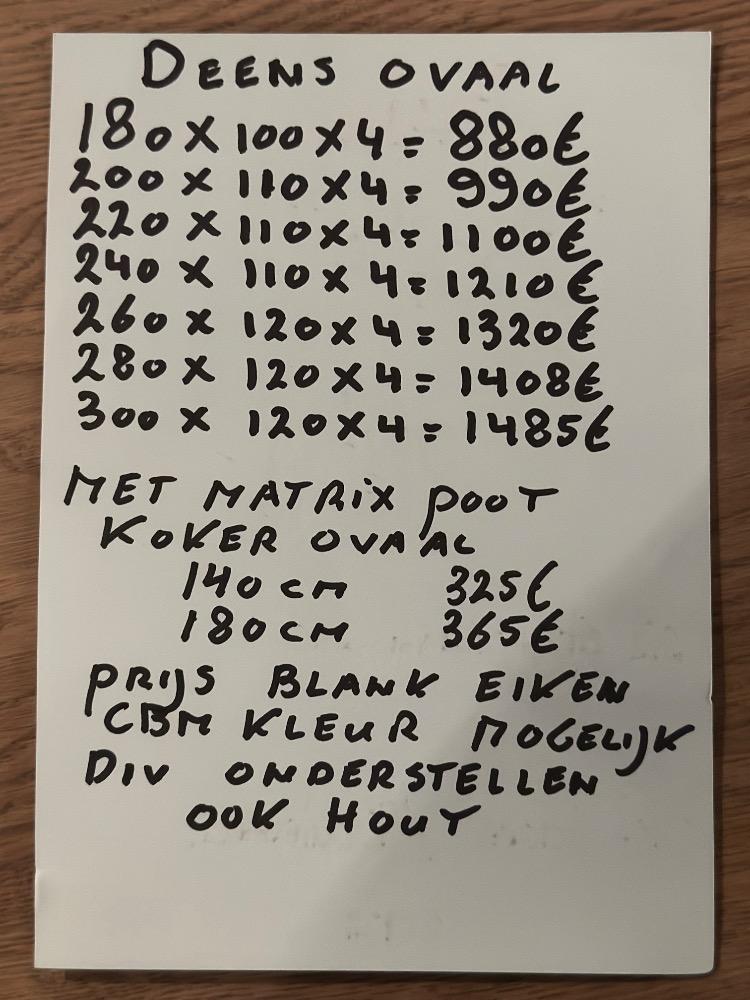 DEENS OVAAL
180 X 100 X 4 = 880€
200 X 110 X 4 = 990€
220 X 110 X 4 = 1100€
240 X 110 X 4 = 1210€
260 X 120 X 4 = 1320€
280 X 120 X 4 = 1408€
300 X 120 X 4 = 1485€
MET MATRIX POOT
KOKER OVAAL
140 CM 325€
180 CM 365€
PRIJS BLANK EIKEN
CBM KLEUR MOGELIJK
DIV ONDERSTELLEN
OOK HOUT